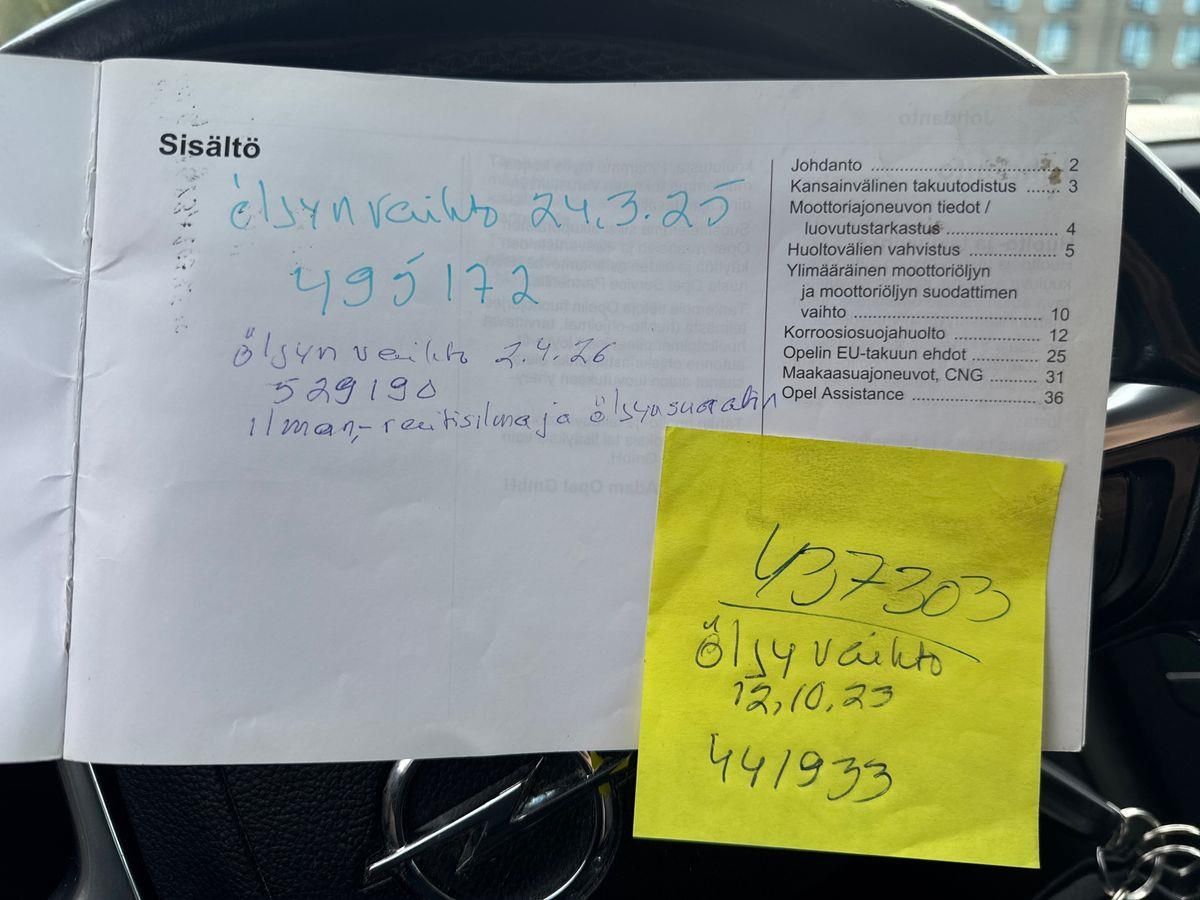 Sisältö
öljynvaihto 24.3.25
495172
öljyn vaihto 2.4.26
529190
ilman,- reitisilma ja öljynsuodatin
Johdanto ........................................ 2
Kansainvälinen takuutodistus ....... 3
Moottoriajoneuvon tiedot /
luovutustarkastus ....................... 4
Huoltovälien vahvistus ................. 5
Ylimääräinen moottoriöljyn
ja moottoriöljyn suodattimen
vaihto ........................................ 10
Korroosiosuojahuolto .................. 12
Opelin EU-takuun ehdot .............. 25
Maakaasuajoneuvot, CNG ........... 31
Opel Assistance ........................... 36
437303
öljy vaihto
12,10,23
441933